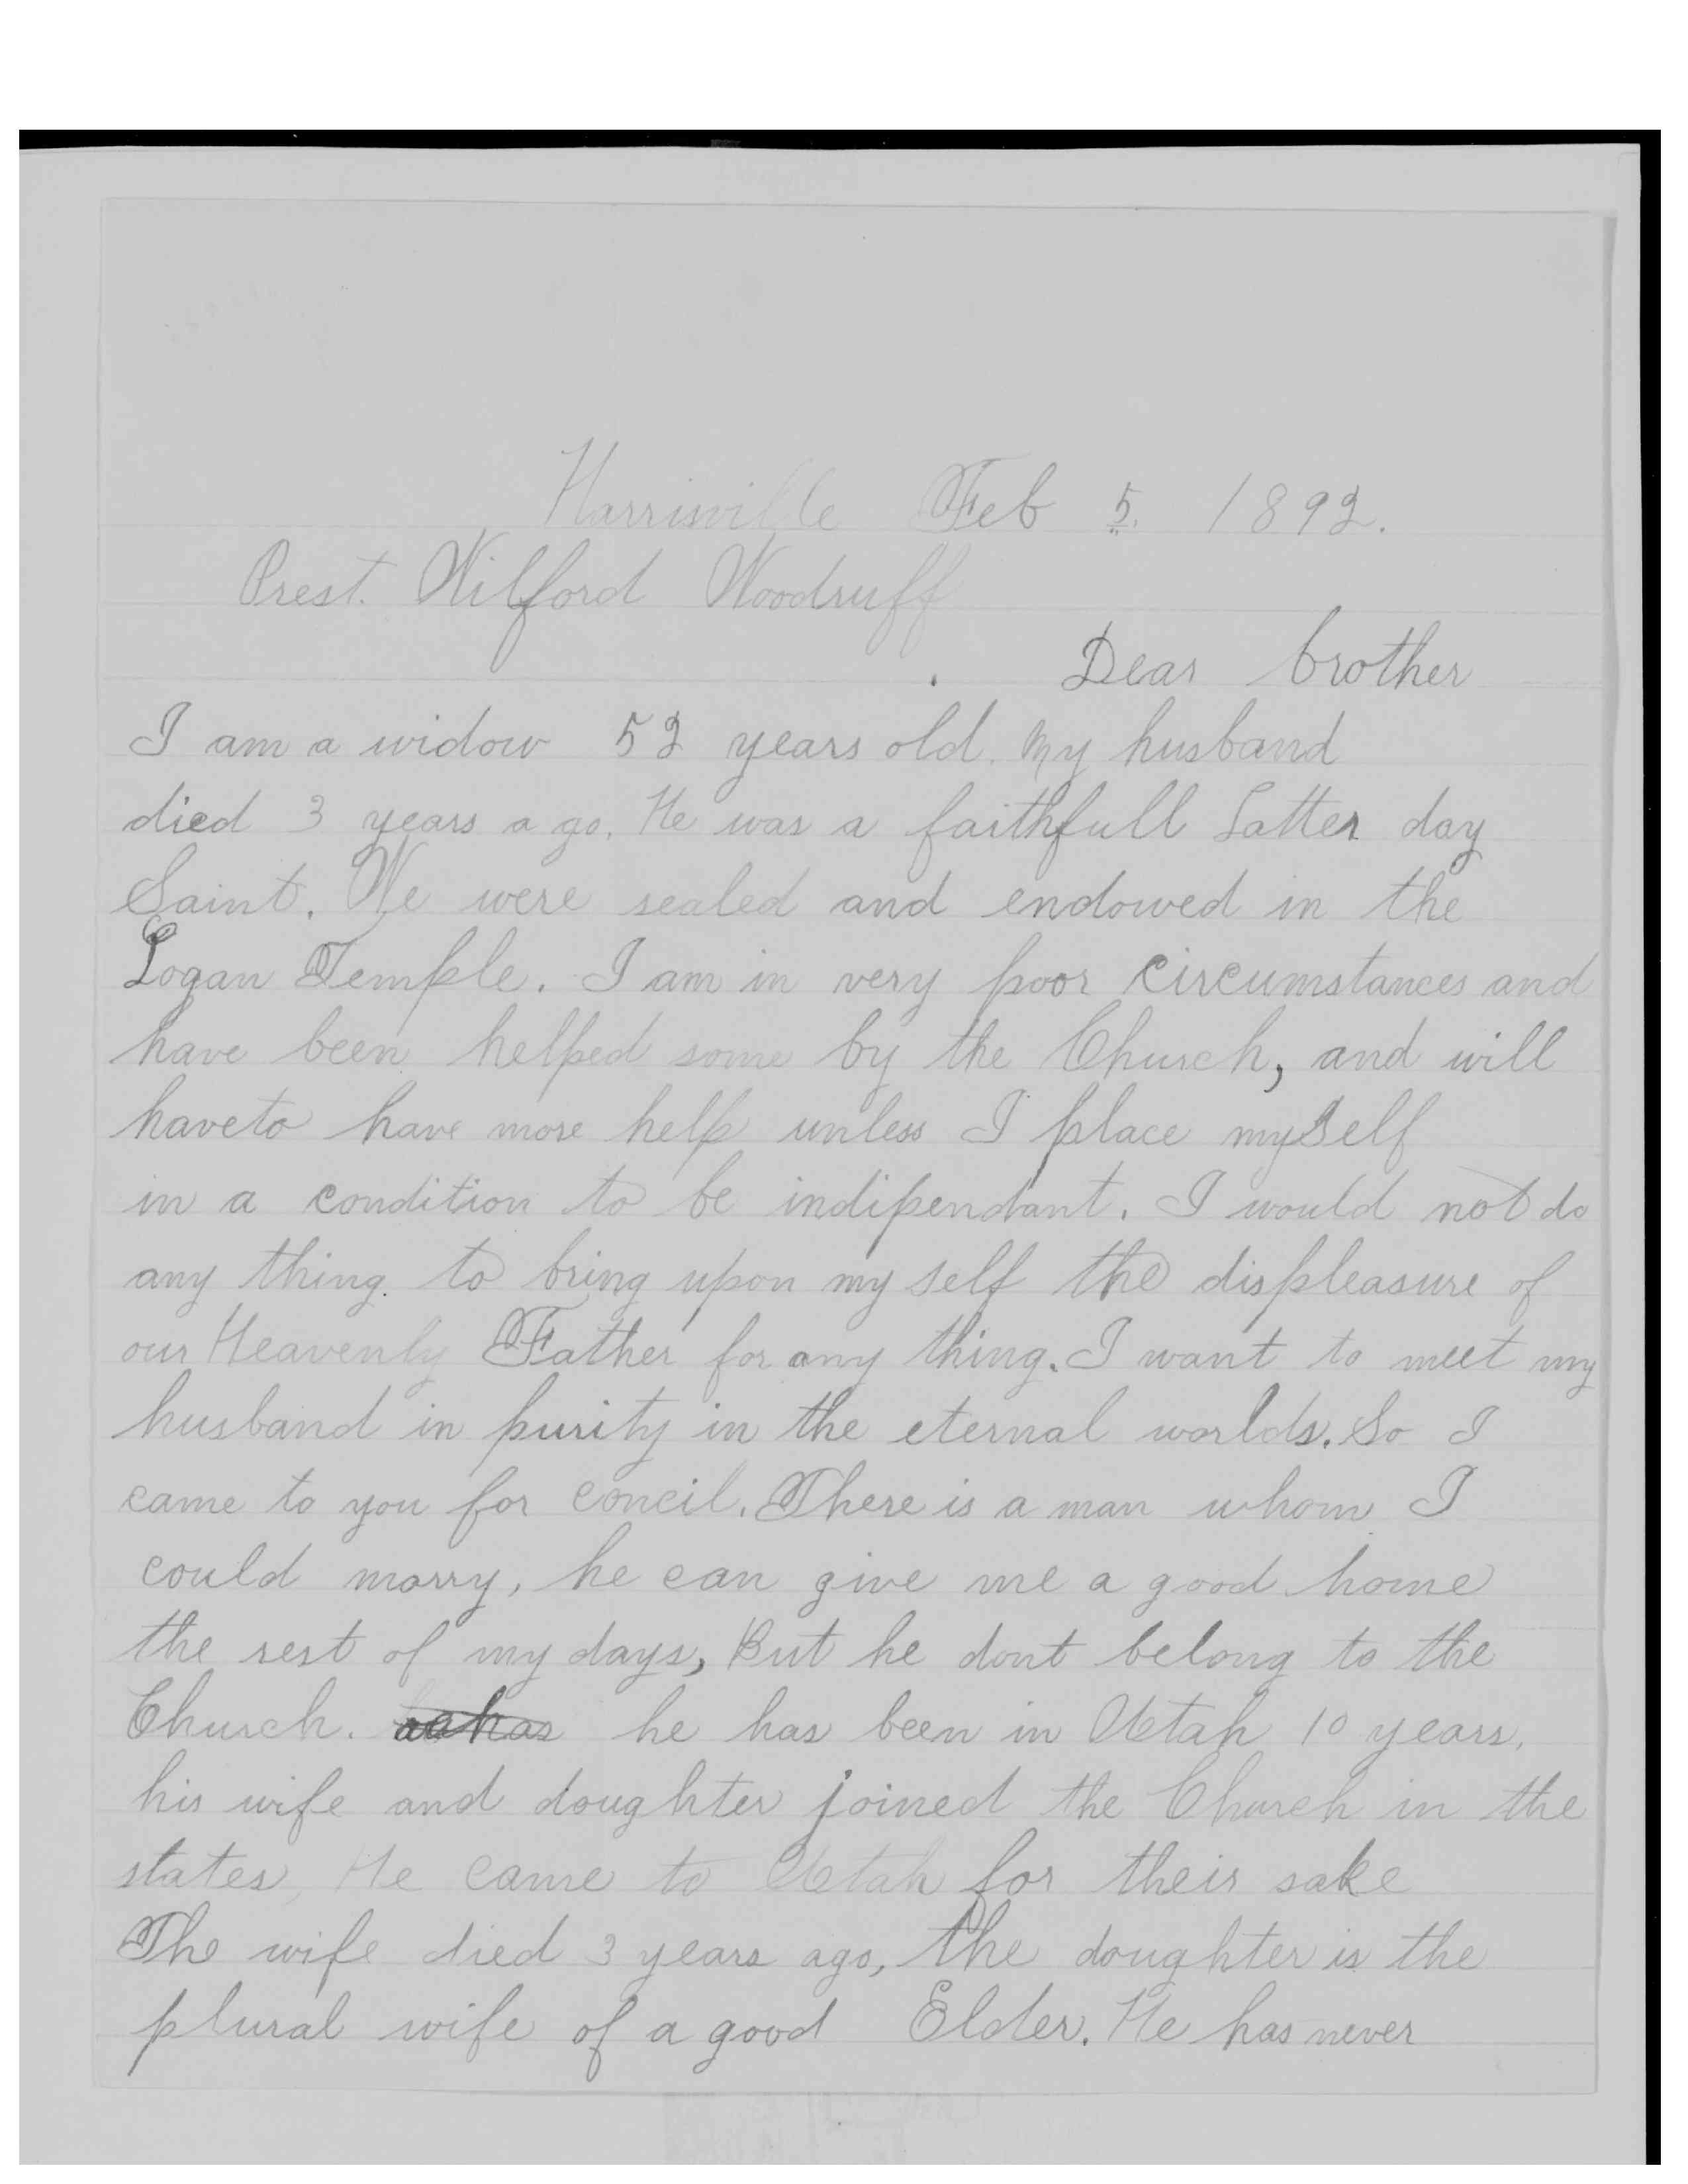 Harrisville Feb 5. 1892.
Prest. Wilford Woodruff
Dear brother
I am a widow 52 years old. My husband
died 3 years a go. He was a faithfull Latter day
Saint. We were sealed and endowed in the
Logan Temple. I am in very poor circumstances and
have been helped some by the Church, and will
haveto have more help unless I place myself
in a condition to be indipendant. I would not do
any thing. to bring upon my self the displeasure of
our Heavenly Father for any thing. I want to meet my
husband in purity in the eternal worlds. So I
came to you for concil. There is a man whom I
could marry, he can give me a good home
the rest of my days, But he dont belong to the
Church. he has been in Utah 10 years.
his wife and doughter joined the Church in the
states, He came to Utah for their sake
The wife died 3 years ago, the doughter is the
plural wife of a good Elder. He has never